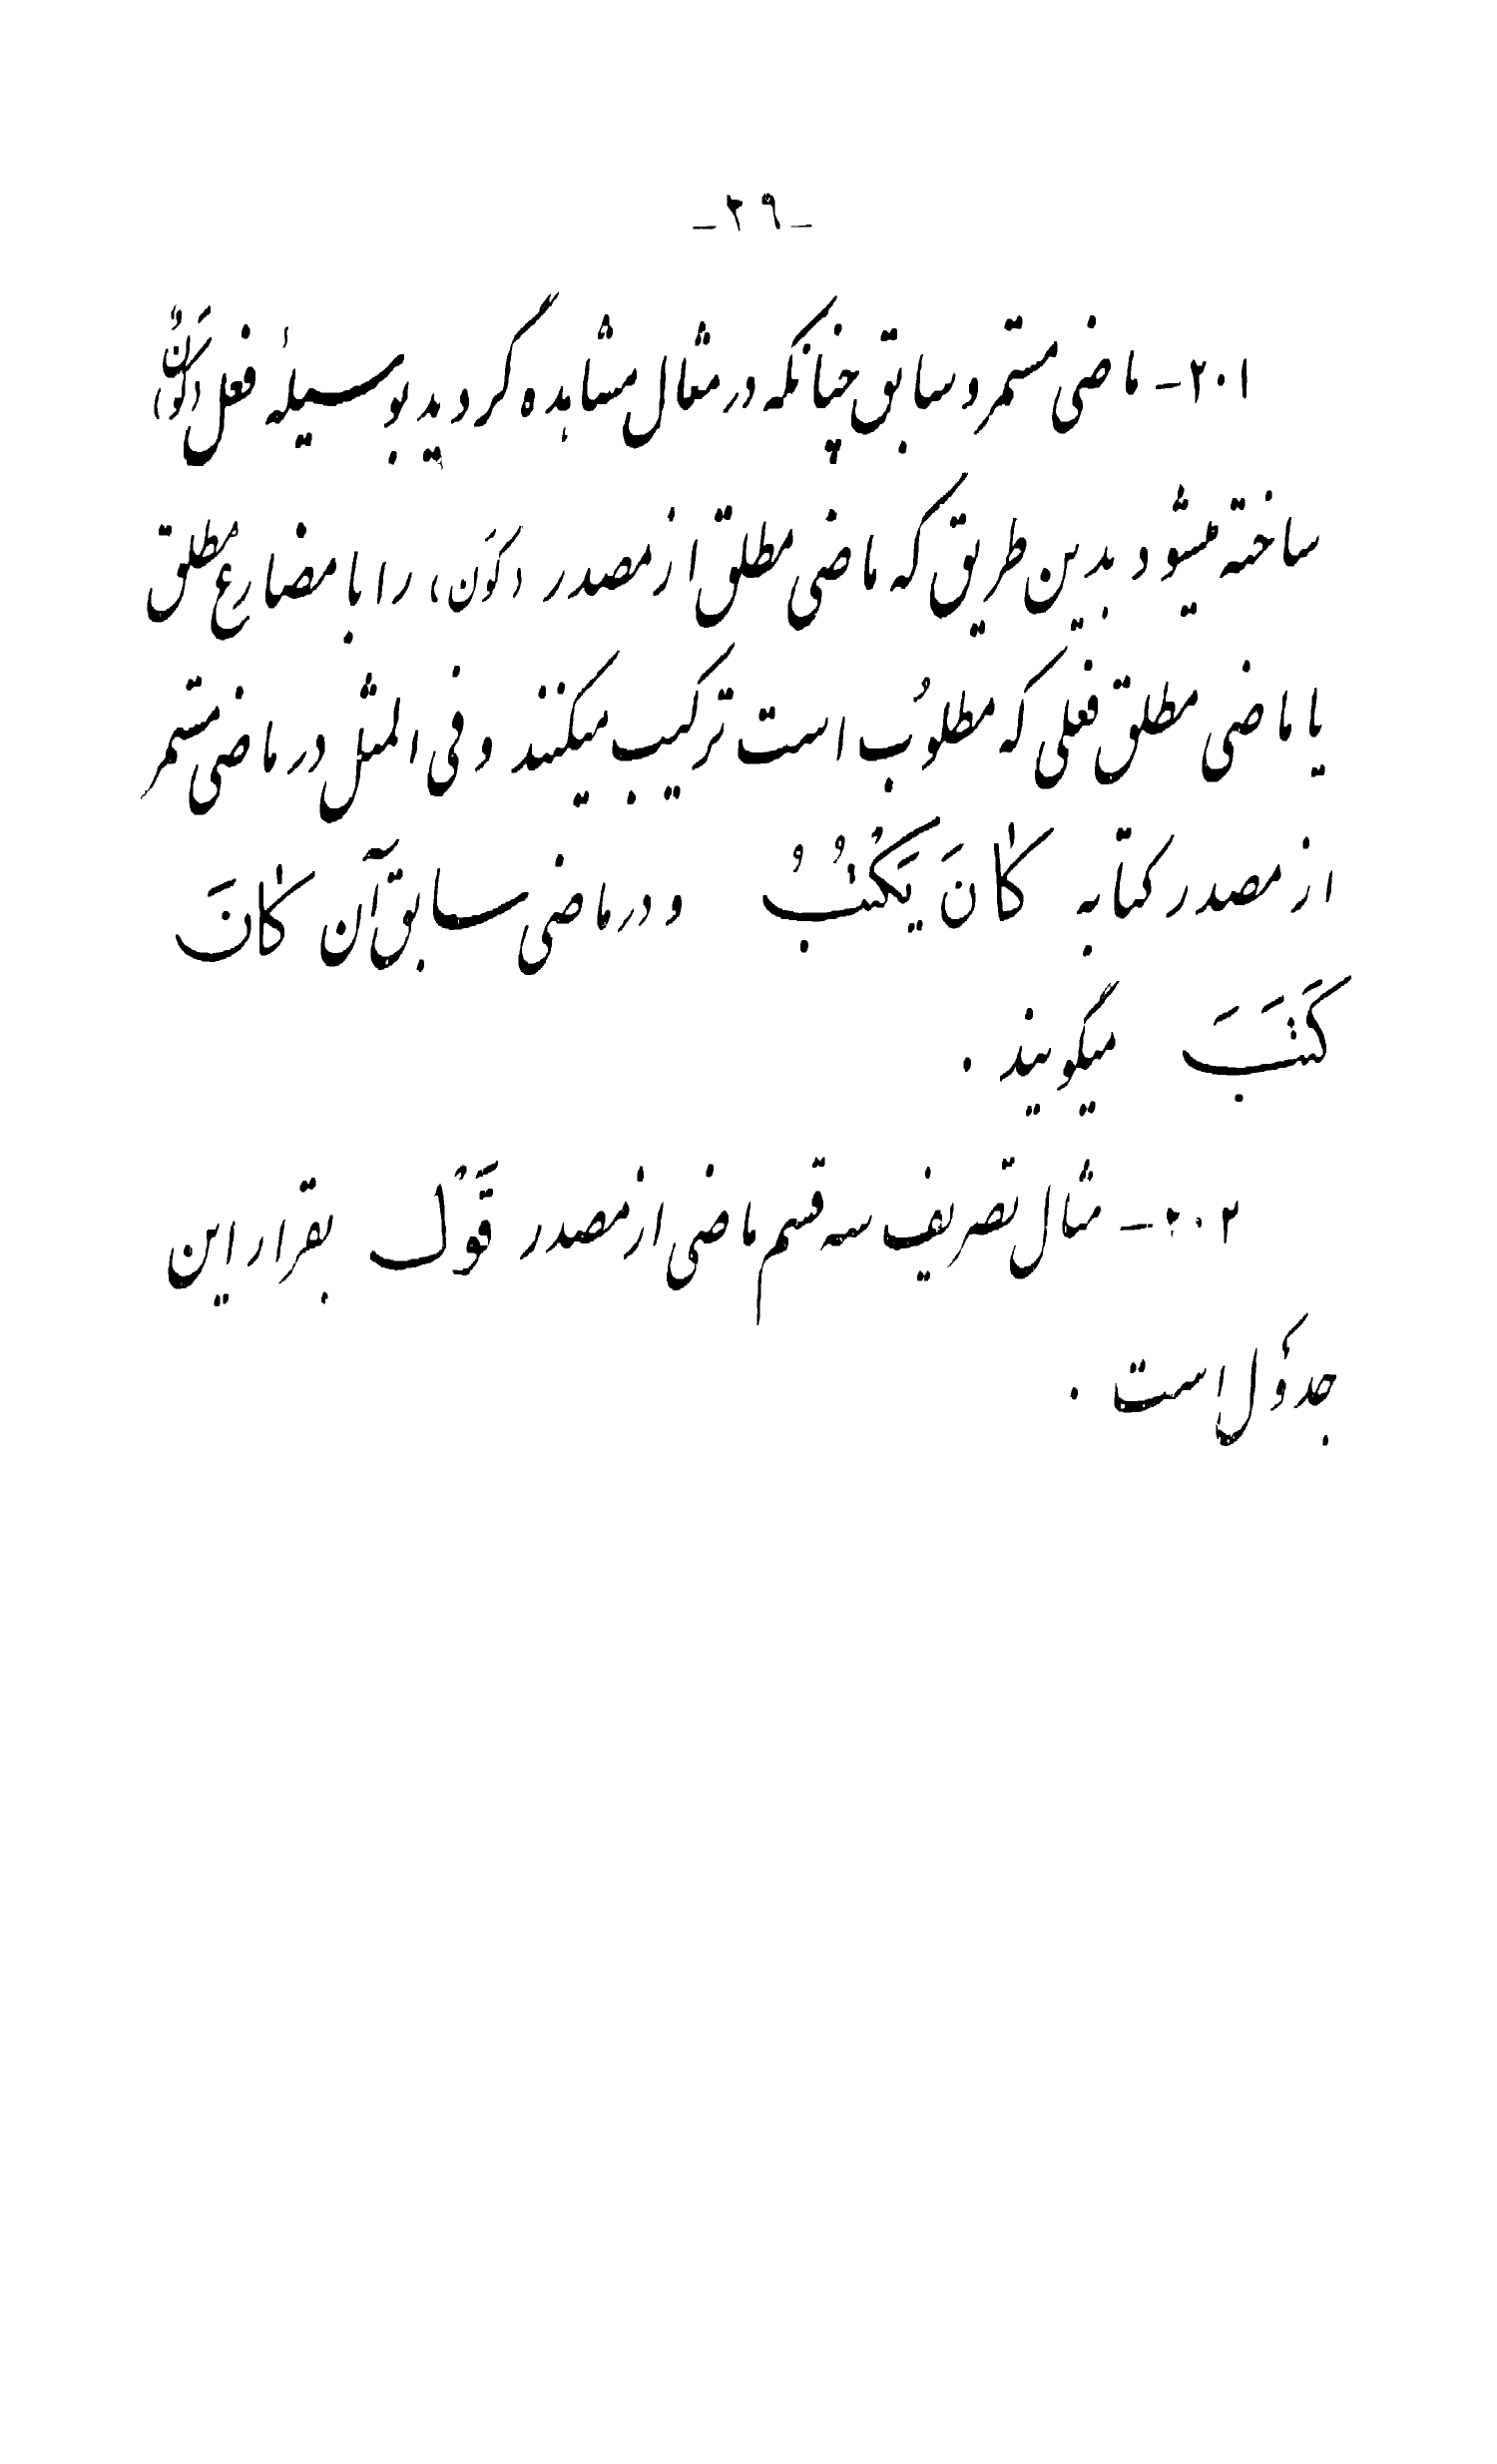 -٢٦-
٢٠١- ماضی مستمر و سابق چنانکه در مثال مشاهده گردید بوسیلهٔ فعل (کَوْنٌ)
ساخته میشود بدین طریق که ماضی مطلق از مصدر (کَوْن) را با مضارع مُطلق
یا ماضی مطلق فعلی که مطلوُب است ترکیب میکنند و فی المثل در ماضی مستمر
از مصدر کتابه کانَ یَکْتُبُ و در ماضی سابق آن کانَ
کَتَبَ میگویند .
٢٠٢- مثال تصریف سه قسم ماضی از مصدر قَوْل بقرار این
جدوَل است .